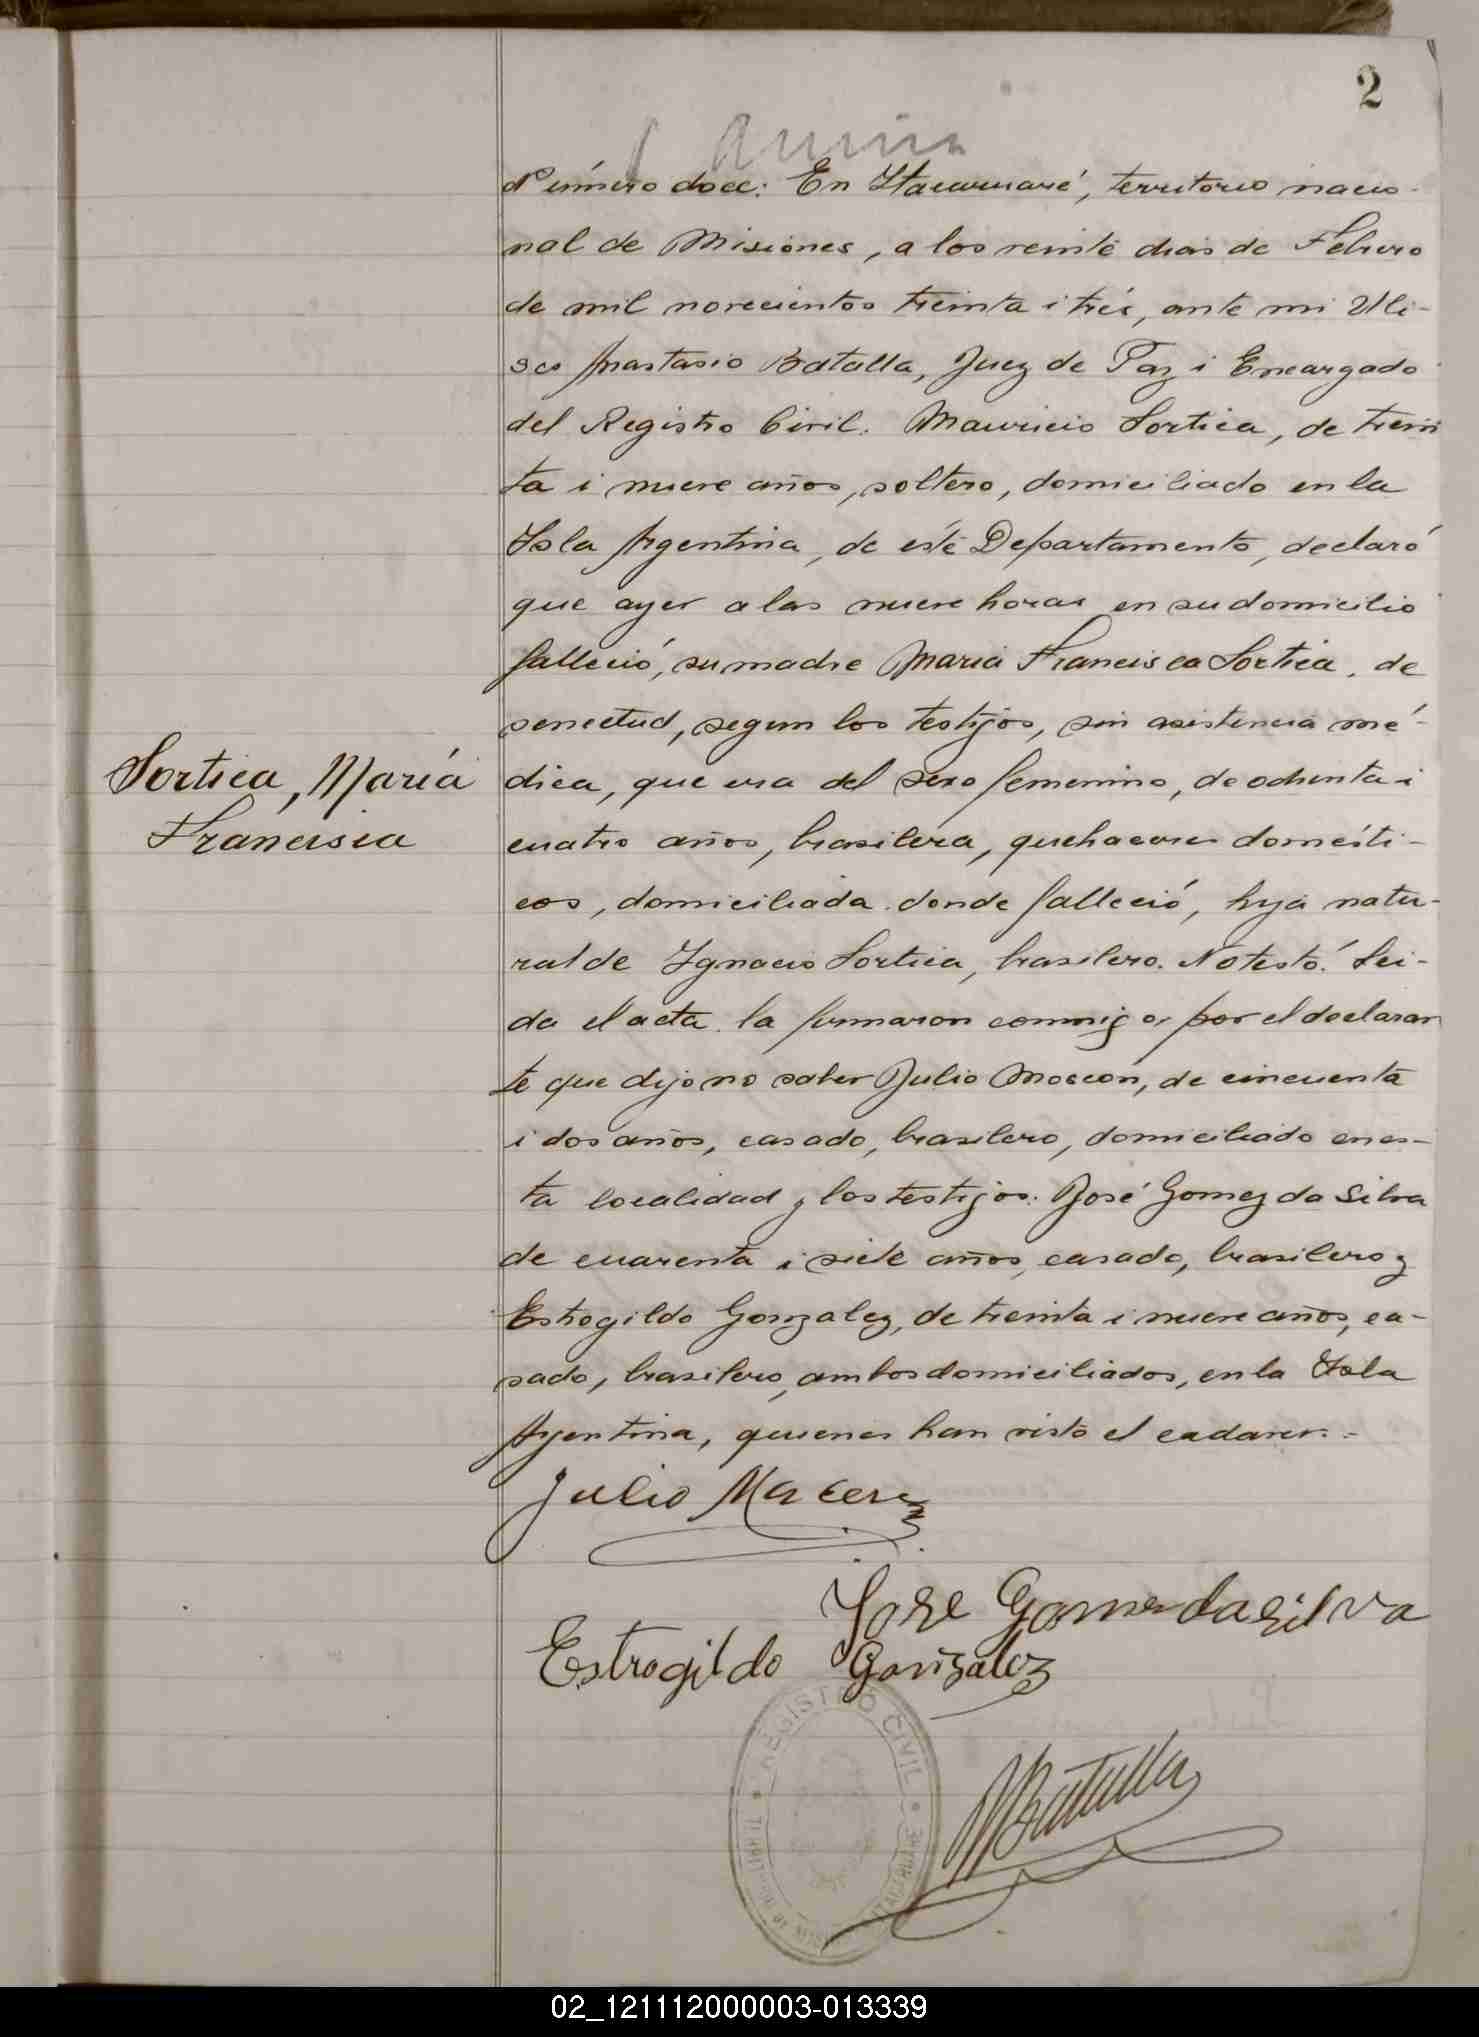 2
Número doce: En Itacaruaré, territorio nacio-
nal de Misiones, a los veinte dias de Febrero
de mil novecientos treinta i tres, ante mi Uli-
ses Anastasio Batalla, Juez de Paz i Encargado
del Registro Civil. Mauricio Sortica, de trein
ta i nueve años, soltero, domiciliado en la
Isla Argentina, de este Departamento, declaró
que ayer a las nueve horas en su domicilio
falleció, su madre Maria Francisca Sortica, de
senectud, segun los testijos, sin asistencia mé-
dica, que era del sexo femenino, de ochenta i
Sortica, María
Francisca
cuatro años, brasilera, quehaceres domésti-
cos, domiciliada donde falleció, hija natu-
ral de Ignacio Sortica, brasilero. No testó. Lei-
da el acta la firmaron conmigo, por el declaran
te que dijo no saber Julio Moscon, de cincuenta
i dos años, casado, brasilero, domiciliado en es-
ta localidad y los testijos: José Gomez da Silva
de cuarenta i siete años, casado, brasilero y
Estrogildo Gonzalez, de treinta i nueve años, ca-
sado, brasilero, ambos domiciliados, en la Isla
Argentina, quienes han visto el cadaver.-
Julio
Jose Gomes da silva
Estrogildo Gonzalez
REGISTRO CIVIL
Batalla
02_121112000003-013339